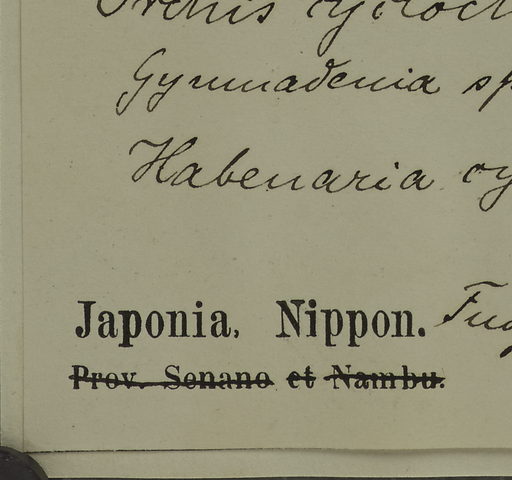 Orchis cycloch
Gymnadenia sp
Habenaria cy
Japonia, Nippon. Fuj
Prov. Senano et Nambu.